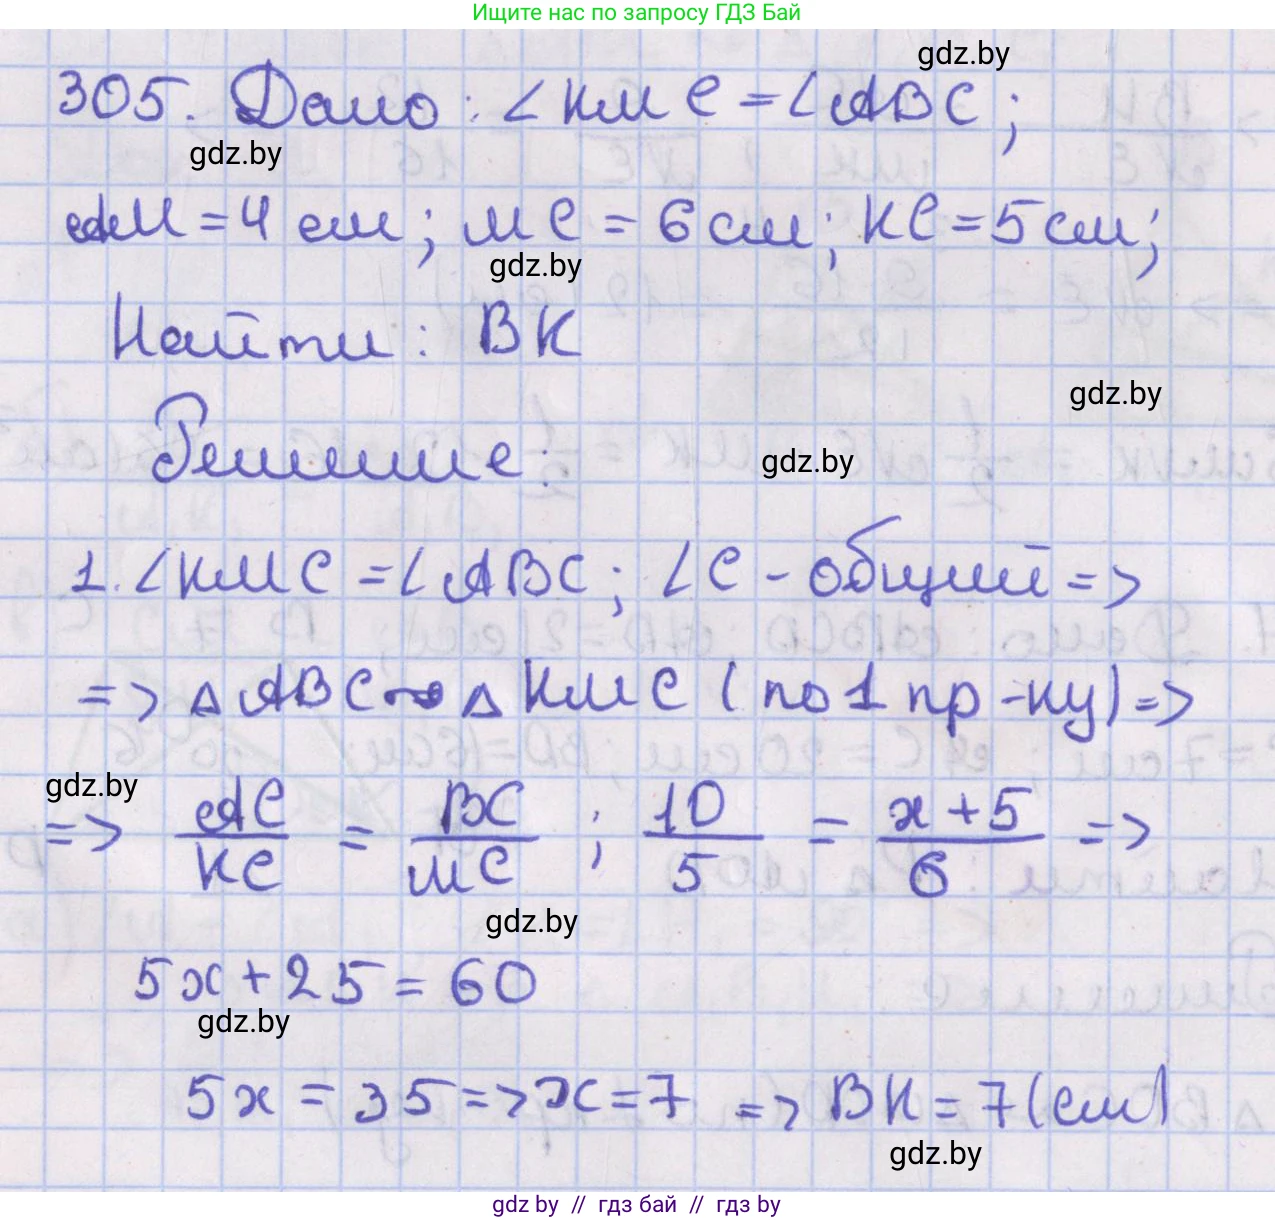 Ищите нас по запросу ГДЗ Бай
gdz.by
305. Дано: ∠KMC = ∠ABC;
gdz.by
AM = 4 см; MC = 6 см; KC = 5 см;
gdz.by
Найти: BK
gdz.by
Решение:
gdz.by
1. ∠KMC = ∠ABC; ∠C - общий =>
=> △ABC ~ △KMC (по 1 пр-ку) =>
gdz.by
=> AC/KC = BC/MC; 10/5 = x+5/6 =>
gdz.by
5x + 25 = 60
gdz.by
5x = 35 => x = 7 => BK = 7 (см)
gdz.by
gdz.by // гдз бай // гдз by